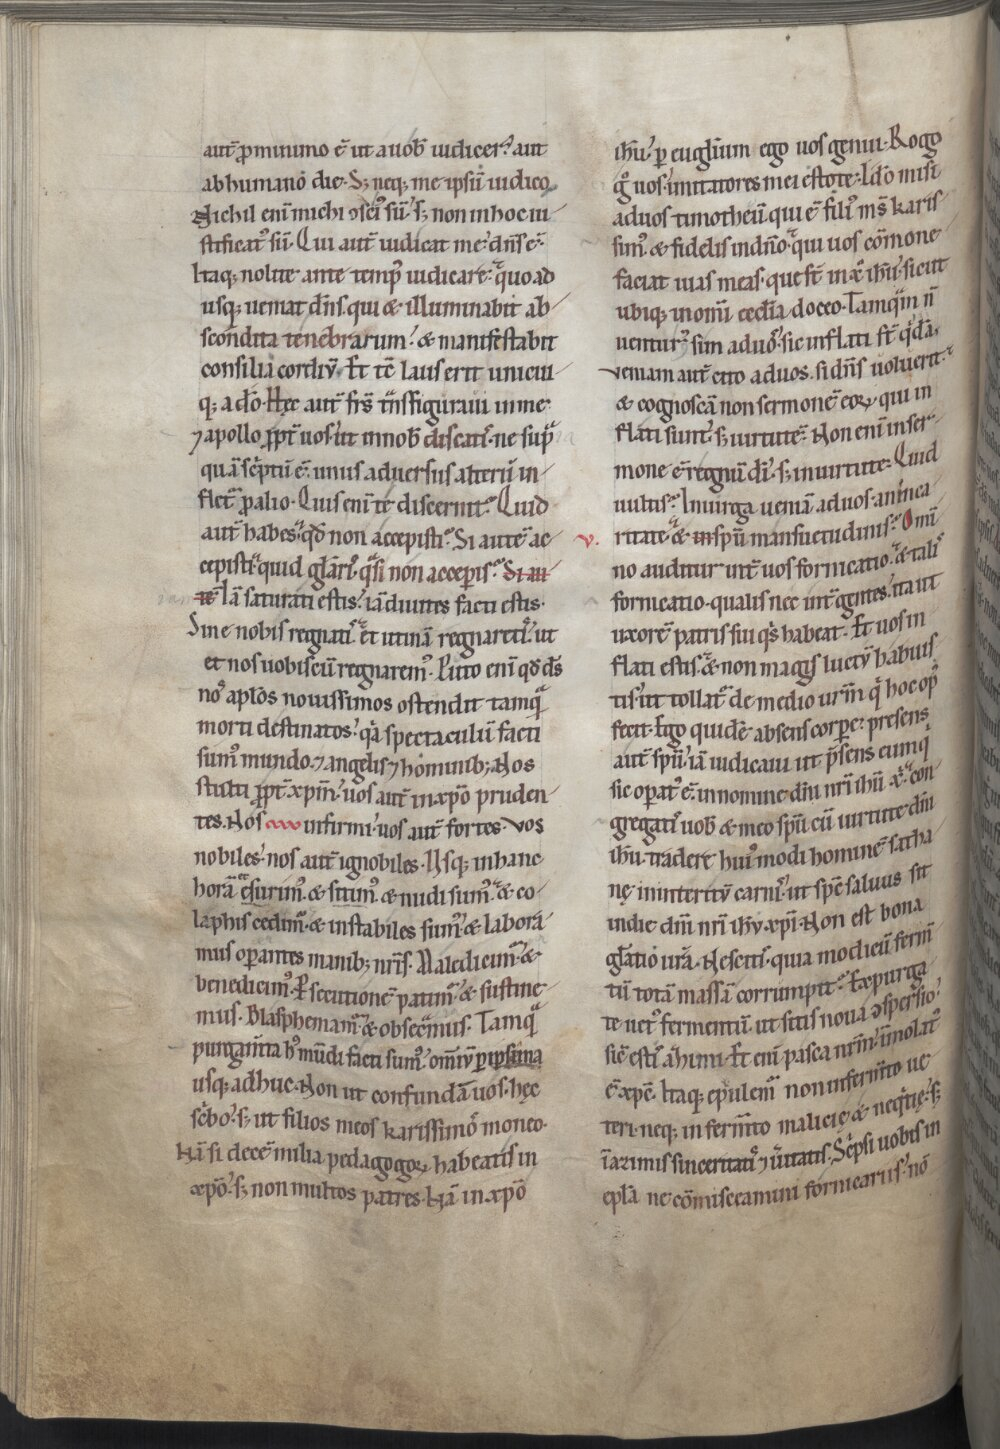 aut̄ ꝓ minimo ē ut a uob̄ iudicer᷑ aut
ab humano die. Sꝫ neqꝫ me ipsū iudico.
Nichil enī michi ꝯsci᷒ sū. sꝫ non in hoc iu
stificat᷒ sū. Qui aut̄ iudicat me dn̄s ē.
Itaqꝫ nolite ante temp᷒ iudicare. quo ad
usqꝫ ueniat dn̄s. qui & illuminabit ab
scondita tenebrarum. & manifestabit
consilia cordiū. Et tc̄ laus erit unicui
qꝫ a dō. Hęc aut̄ frs̄ t̄nsfiguraui in me
⁊ apollo ꝓpt̄ uos. ut in nob̄ discatis. ne sup̄
quā sc̄ptū ē. unus aduersus alterū in
flet᷑ ꝓ alio. Quis enī te discernit? Quid
aut̄ habes qd̄ non accepisti? Si autē ac
cepisti quid gl̄aris q̄si non acceperis? Si au
tē Iā saturati estis. iā diuites facti estis.
Sine nobis regnatis. et utinā regnaretis. ut
et nos uobiscū regnarem᷒. Puto enī qd̄ ds̄
nos apl̄os nouissimos ostendit tamquā
morti destinatos. q̄a spectaculū facti
sum᷒ mundo. ⁊ angelis ⁊ hominibꝫ. Nos
stulti ꝓpt̄ xp̄m. uos aut̄ in xp̄o pruden
tes. Nos infirmi. uos aut̄ fortes. Vos
nobiles. nos aut̄ ignobiles. Usqꝫ in hanc
horā & esurim᷒. & sitim᷒. & nudi sum᷒. & co
laphis cedim᷒. & instabiles sum᷒. & labora
mus oꝑantes manibꝫ nr̄is. Maledicim᷒ &
benedicim᷒. Persecutionē patim᷒ & sustine
mus. Blasphemam᷒ & obsec̄mus. Tamquā
purgam̄ta h᷒ mūdi facti sum᷒. om̄iū ꝑipsima
usqꝫ adhuc. Non ut confundā uos. hęc
sc̄bo. sꝫ ut filios meos karissimos moneo.
Nā si decē milia pedagogoꝝ habeatis in
xp̄o. sꝫ non multos patres. Nā in xp̄o
ih̄u. ꝑ euglium ego uos genui. Rogo
g̊ uos. imitatores mei estote. Ido misi
ad uos timotheū qui ē fili᷒ ms̄ karis
sim᷒. & fidelis in dn̄o. qui uos cōmone
faciat uias meas. que st̄ in xp̄o ih̄u. sicut
ubiqꝫ in om̄i ecclīa doceo. Tamquam n̄
uentur᷒ sim ad uos. sic inflati st̄ q̄dā.
Veniam aut̄ cito ad uos. si dn̄s uoluerit.
& cognoscā non sermonē eoꝝ qui in
flati sunt. sꝫ uirtutē. Non enī in ser
mone ē regnū dī. sꝫ in uirtute. Quid
uultis? In uirga ueniā ad uos. an in ca
v. ritate & in spū mansuetudinis? Omi
no auditur int̄ uos fornicatio. & talis
fornicatio. qualis nec int̄ gentes. ita ut
uxorē patris sui q̄s habeat. Et uos in
flati estis. & non magis luctū habuis
tis. ut tollat᷑ de medio ur̄m q̄ hoc op᷒
fecit. Ego quidē absens corpore presens
aut̄ spū. iā iudicaui ut p̄sens eum q̄
sic oꝑat᷒ ē. in nomine dn̄i nr̄i ih̄u xp̄i. con
gregatis uob̄ & meo spū cū uirtute dn̄i
ih̄u. tradere hui᷒ modi hominē satha
nę in interitū carnis. ut sps̄ saluus sit
in die dn̄i nr̄i ih̄u xp̄i. Non est bona
gl̄atio ur̄a. Nescitis. quia modicū ferm̄
tū totā massā corrumpit? Expurga
te uet᷒ fermentū. ut sitis noua ꝯspersio.
sic̄ estis ahimi. Et enī pasca nr̄m. immolat᷒
ē xpē. Itaqꝫ epulem᷑ non in ferm̄to ue
teri. neqꝫ in ferm̄to malicię & neq̄tię. sꝫ
in azimis sinceritatis ⁊ ūitatis. Sc̄psi uobis in
epl̄a ne cōmisceamini fornicariis. nō